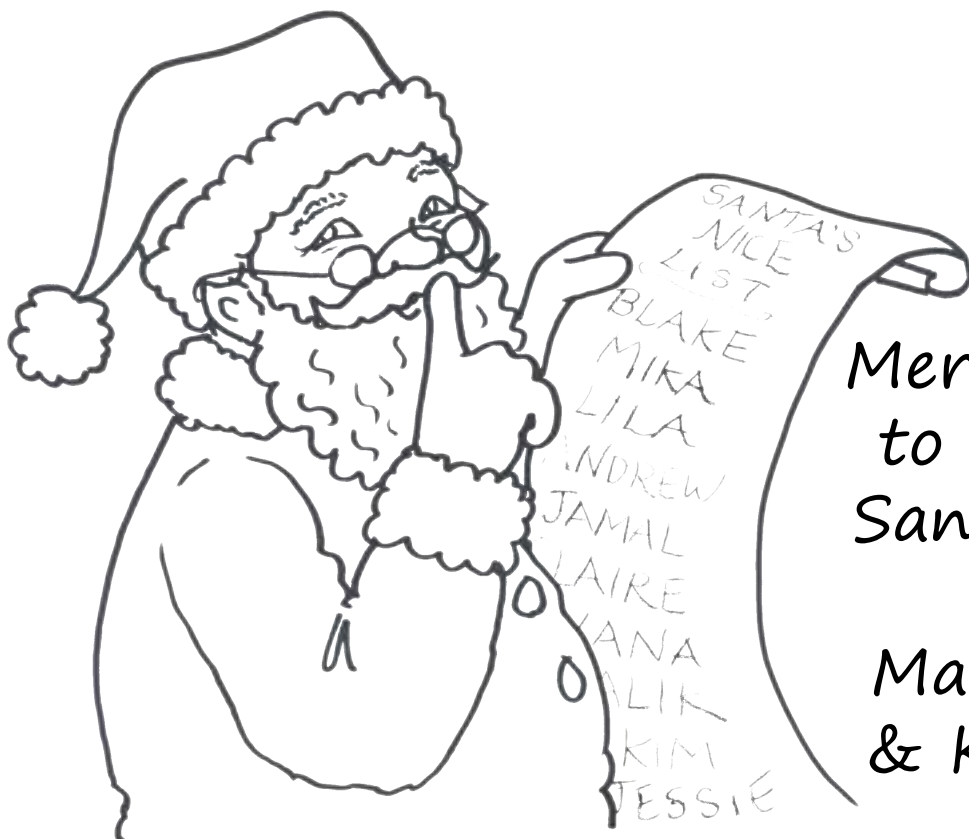 SANTA'S
NICE
LIST
BLAKE
MIKA
LILA
ANDREW
JAMAL
LAIRE
ANA
ALIK
KIM
JESSIE
Mer
to
San
Ma
& K